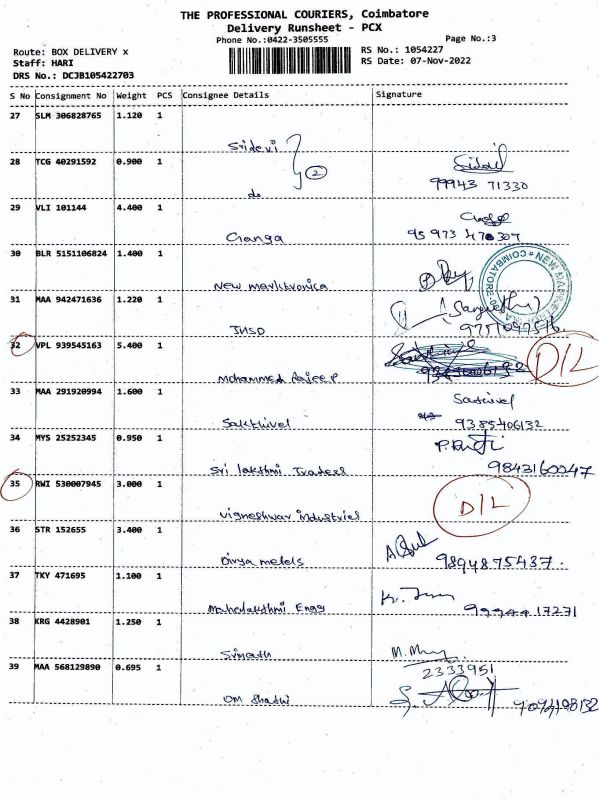 THE PROFESSIONAL COURIERS, Coimbatore
Delivery Runsheet - PCX
Phone No.:0422-3505555
Page No.:3
Route: BOX DELIVERY x
RS No.: 1054227
Staff: HARI
RS Date: 07-Nov-2022
DRS No.: DCJB105422703
S No Consignment No Weight PCS Consignee Details Signature
27 SLM 306828765 1.120 1
Sridevi
28 TCG 40291592 0.900 1
2
do
99943 71330
29 VLI 101144 4.400 1
Ganga
30 BLR 5151106824 1.400 1
COIMBATORE
31 MAA 942471636 1.220 1
32 VPL 939545163 5.400 1
D/L
Mohammed Rajeep
33 MAA 291920994 1.600 1
Sakthivel
9385406132
34 MYS 25252345 0.950 1
Sri lakshmi Traders
9843160047
35 RWI 530007945 3.000 1
D/L
Vigneshwar industries
36 STR 152655 3.400 1
Divya metels
9894875437.
37 TKY 471695 1.100 1
Mahalakshmi Engg
9994417271
38 KRG 4428901 1.250 1
Srinath
2333951
39 MAA 568129890 0.695 1
Om Shathi